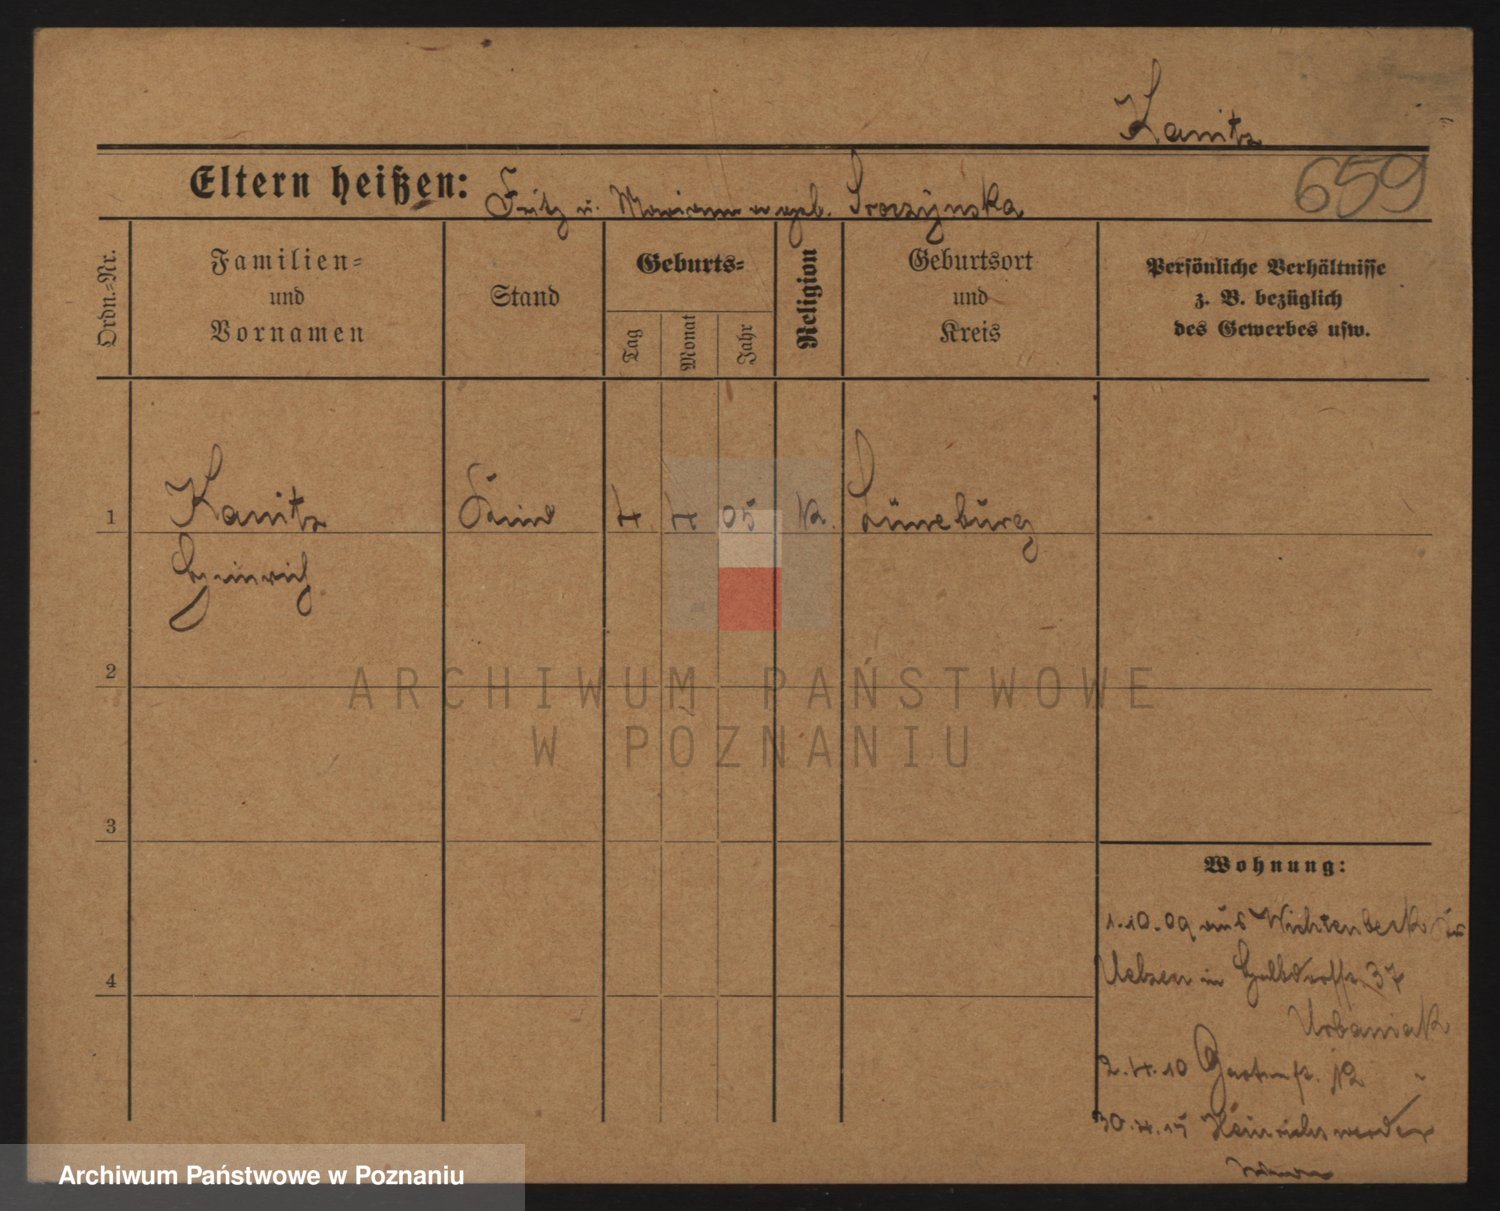 Kanitz
Eltern heißen: Fritz u. Marianna geb.
659
Ordn.=Nr.
Familien=
und
Vornamen
Stand
Geburts=
Tag
Monat
Jahr
Religion
Geburtsort
und
Kreis
Persönliche Verhältnisse
z. B. bezüglich
des Gewerbes usw.
1 Kanitz Kind 4 4 05 k. Lüneburg
Heinrich
2
ARCHIWUM PAŃSTWOWE
W POZNANIU
3
Wohnung:
1.10.09 aus Wichtenbeck
4
Uelzen in Halbdorffstr. 37
Urbaniak
2.4.10 Gartenstr. 12
30.4.15 Heinrichswerder
Archiwum Państwowe w Poznaniu